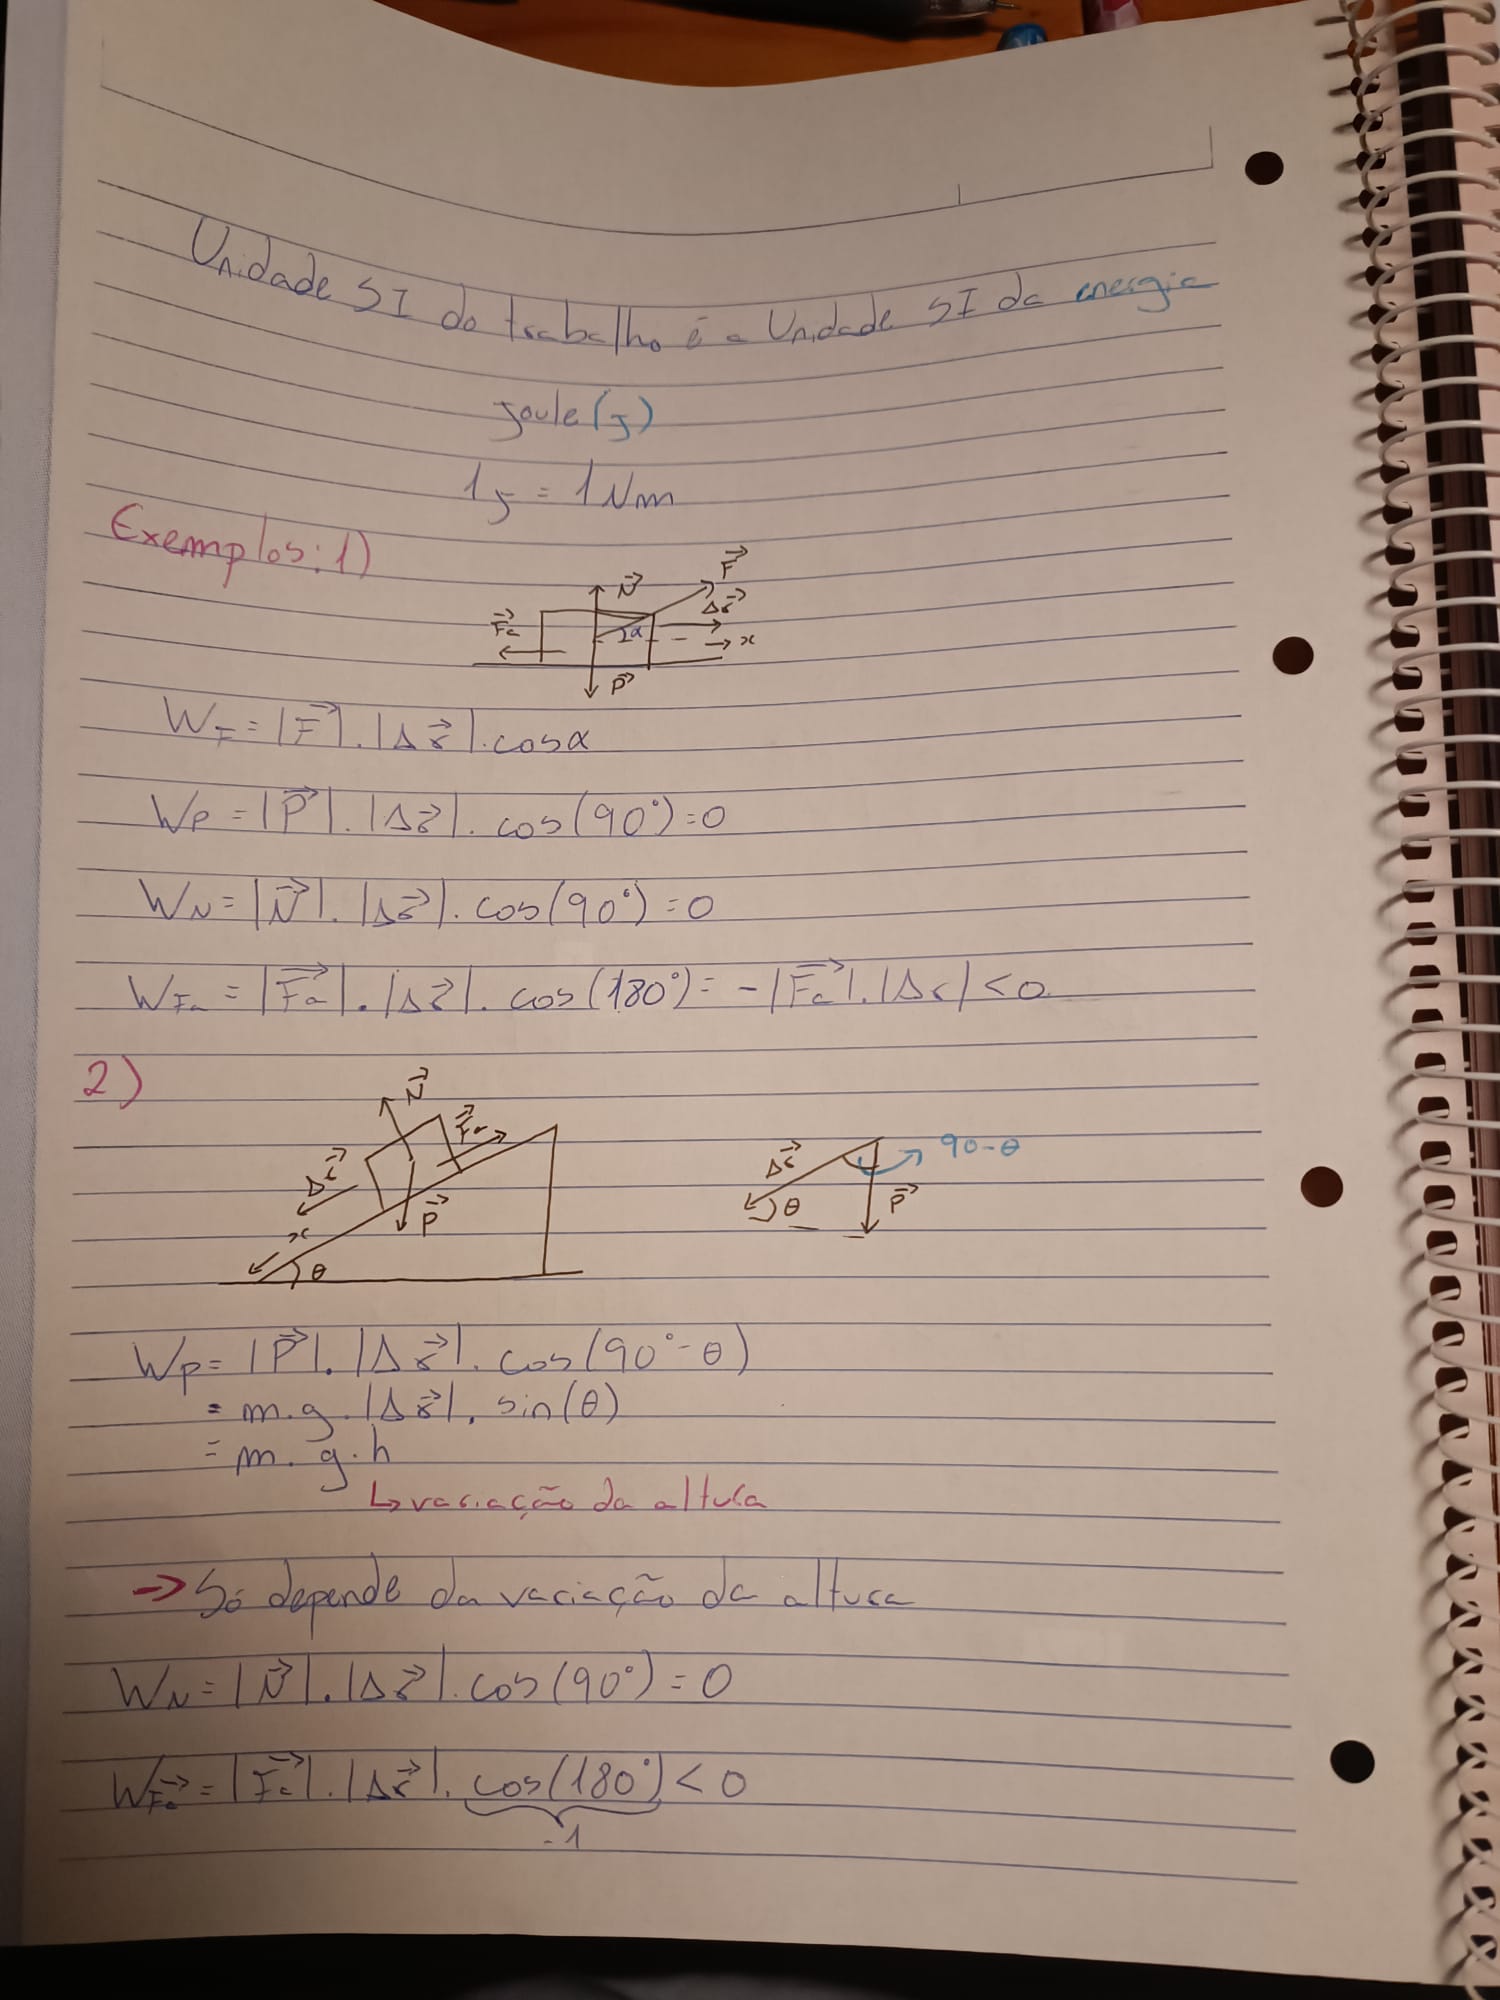 Unidade SI do trabalho é a Unidade SI da energia
Joule (J)
1J = 1Nm
Exemplos: 1)
N⃗
F⃗
Δr⃗
F⃗a
α
→ x
P⃗
W_F = |F⃗|.|Δr⃗|.cosα
W_P = |P⃗|.|Δr⃗|.cos(90°)=0
W_N = |N⃗|.|Δr⃗|.cos(90°)=0
W_Fa = |F⃗a|.|Δr⃗|.cos(180°)= -|F⃗a|.|Δr|<0
2)
N⃗
F⃗a
Δr⃗
P⃗
x
θ
Δr⃗
90-θ
θ
P⃗
W_P = |P⃗|.|Δr⃗|.cos(90°-θ)
= m.g.|Δr⃗|.sin(θ)
= m.g.h
↳ variação da altura
→ Só depende da variação da altura
W_N = |N⃗|.|Δr⃗|.cos(90°)=0
W_F⃗a = |F⃗a|.|Δr⃗|.cos(180°)<0
-1